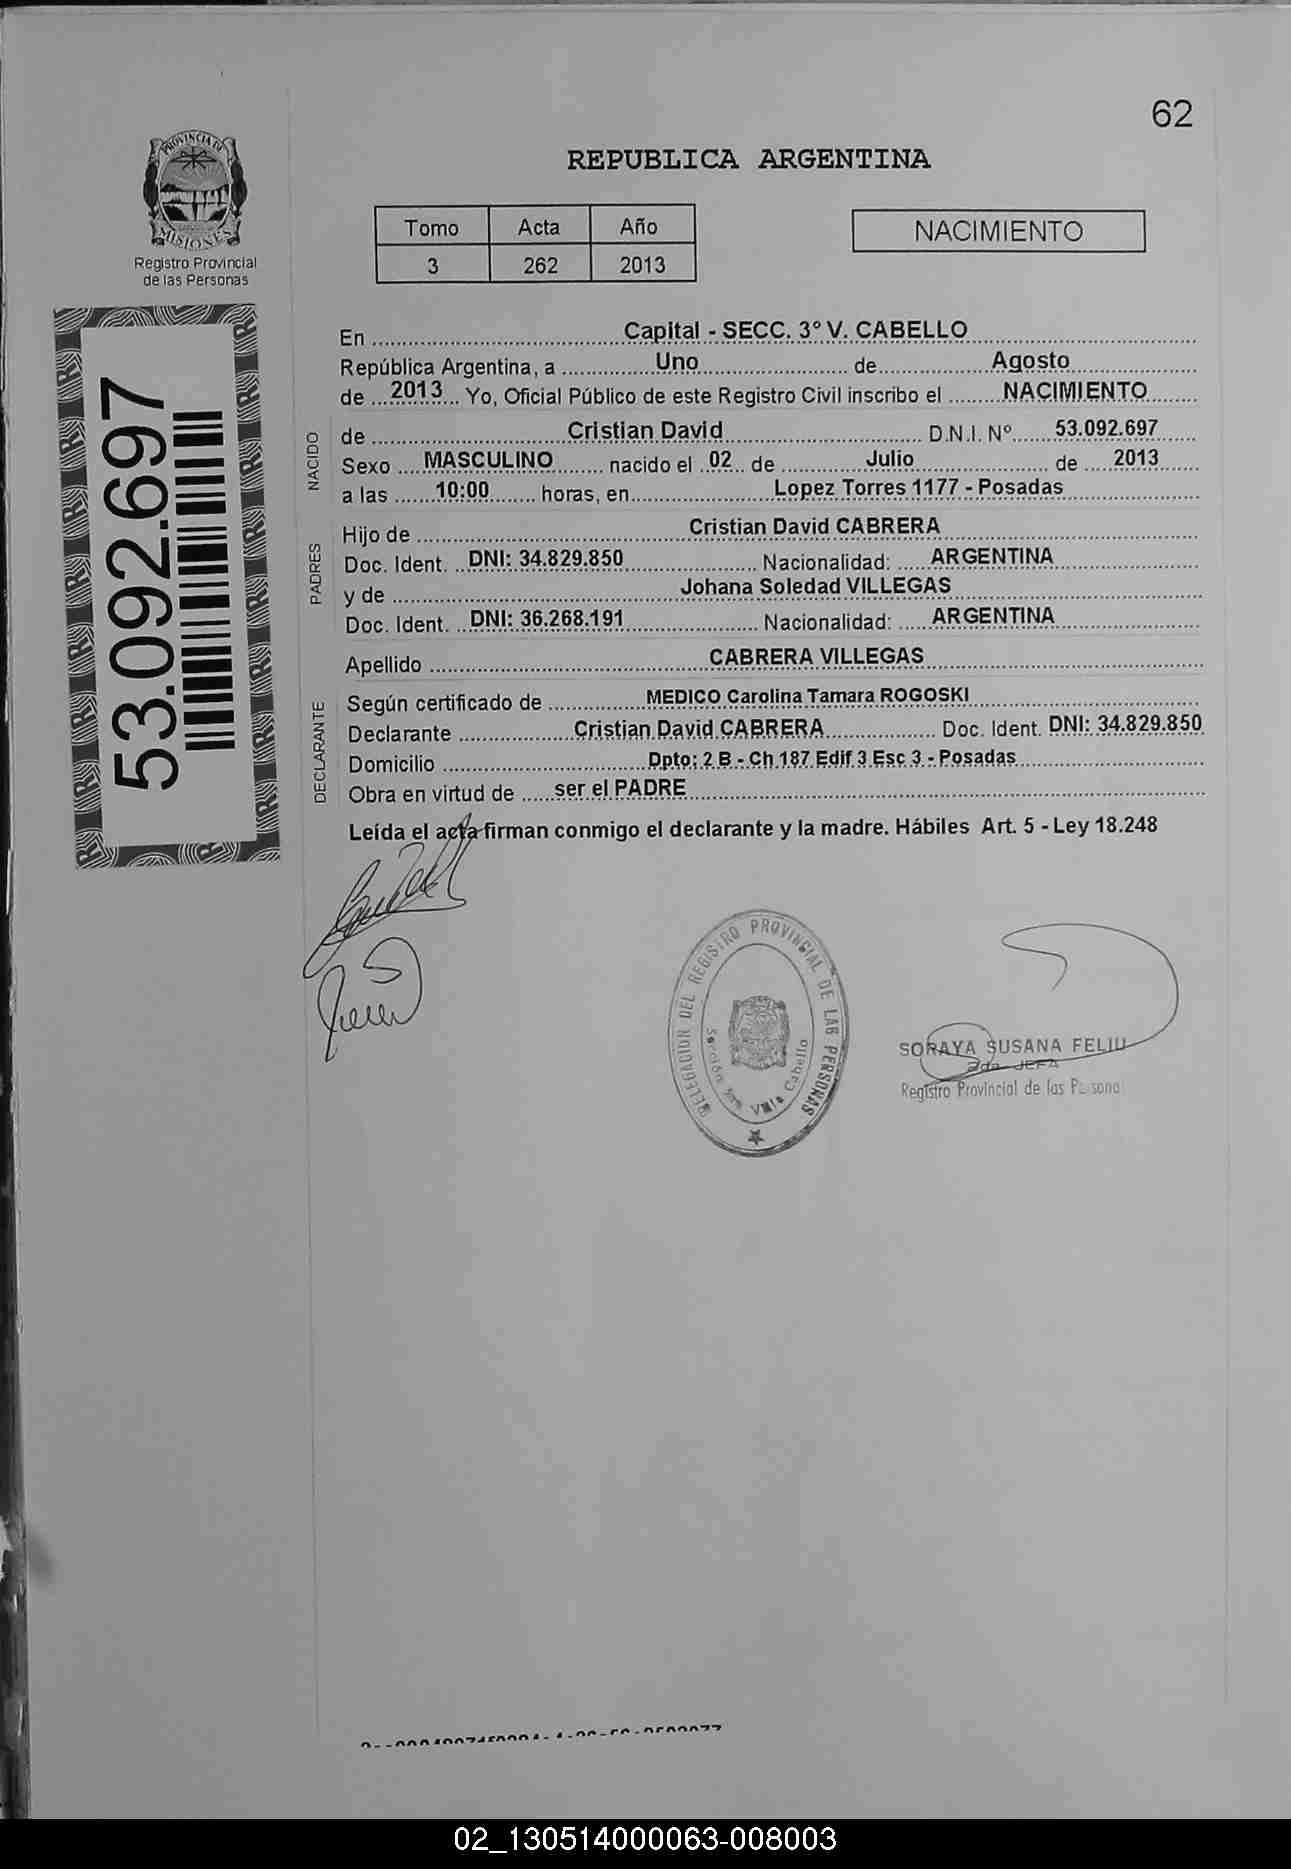 62
PROVINCIA DE
MISIONES
Registro Provincial
de las Personas
REPUBLICA ARGENTINA
Tomo Acta Año
3 262 2013
NACIMIENTO
53.092.697
En Capital - SECC. 3° V. CABELLO
República Argentina, a Uno de Agosto
de 2013 Yo, Oficial Público de este Registro Civil inscribo el NACIMIENTO
NACIDO
de Cristian David D.N.I. Nº 53.092.697
Sexo MASCULINO nacido el 02 de Julio de 2013
a las 10:00 horas, en Lopez Torres 1177 - Posadas
PADRES
Hijo de Cristian David CABRERA
Doc. Ident. DNI: 34.829.850 Nacionalidad: ARGENTINA
y de Johana Soledad VILLEGAS
Doc. Ident. DNI: 36.268.191 Nacionalidad: ARGENTINA
Apellido CABRERA VILLEGAS
DECLARANTE
Según certificado de MEDICO Carolina Tamara ROGOSKI
Declarante Cristian David CABRERA Doc. Ident. DNI: 34.829.850
Domicilio Dpto: 2 B - Ch 187 Edif 3 Esc 3 - Posadas
Obra en virtud de ser el PADRE
Leída el acta firman conmigo el declarante y la madre. Hábiles Art. 5 - Ley 18.248
DELEGACION DEL REGISTRO PROVINCIAL DE LAS PERSONAS
Sección Villa Cabello
SORAYA SUSANA FELIU
2da JEFA
Registro Provincial de las Persona
02_130514000063-008003